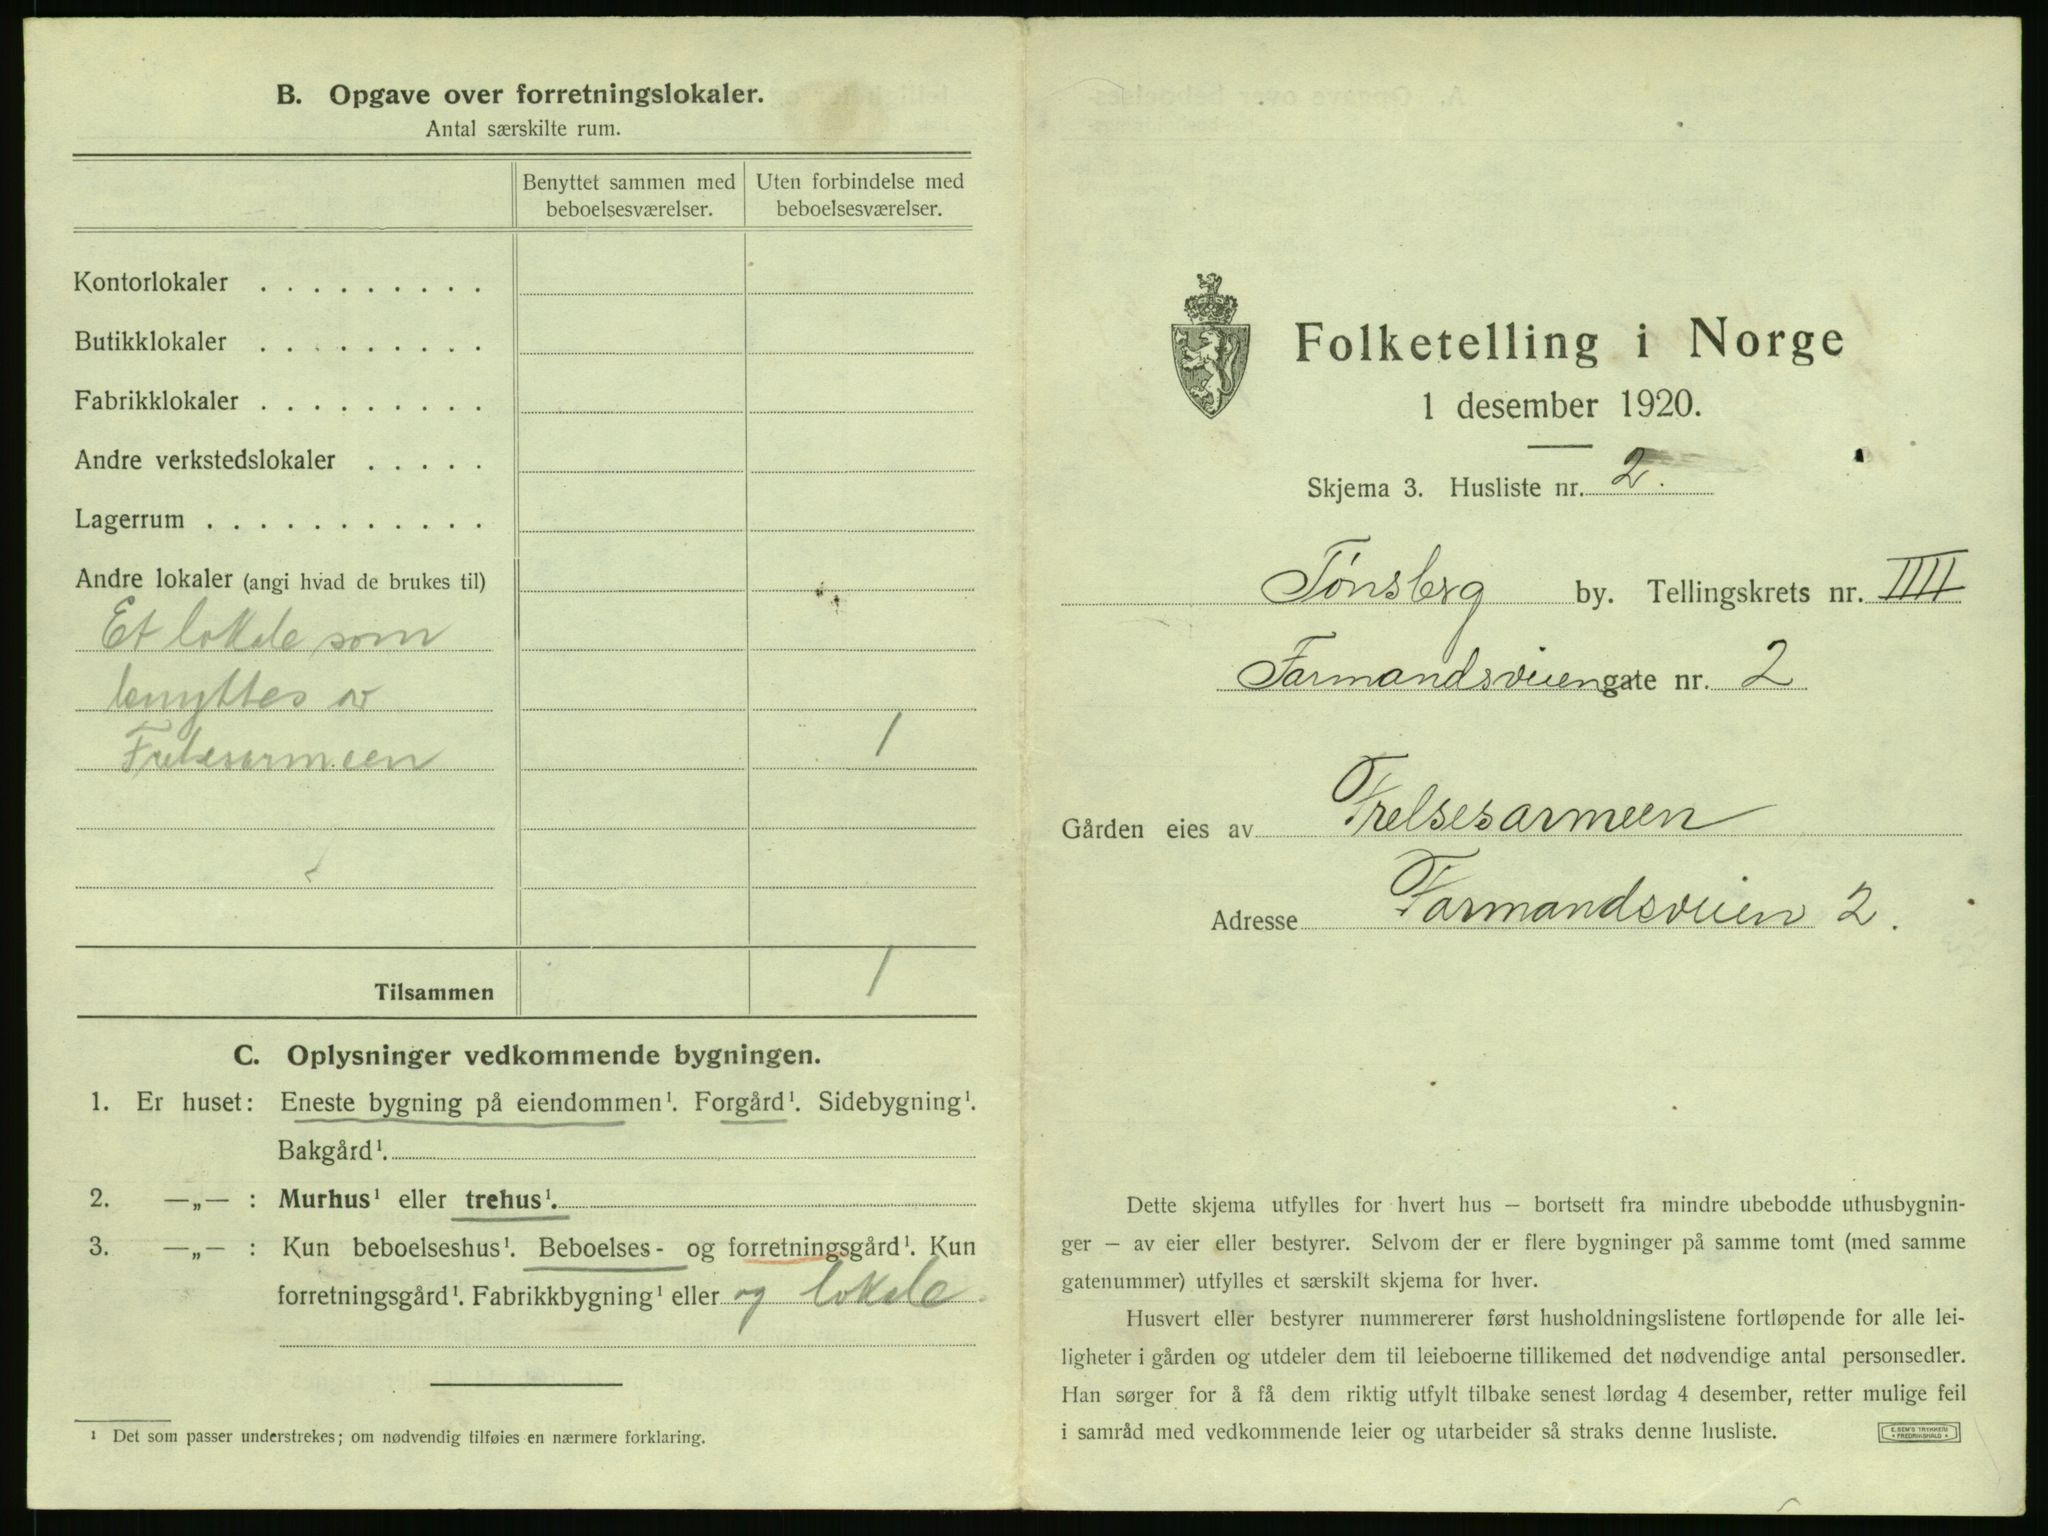 B. Opgave over forretningslokaler.
Antal særskilte rum.
Benyttet sammen med beboelsesværelser.
Uten forbindelse med beboelsesværelser.
Kontorlokaler . . . . . . . . .
Butikklokaler . . . . . . . . .
Fabrikklokaler . . . . . . . . .
Andre verkstedslokaler . . . . .
Lagerrum . . . . . . . . . . .
Andre lokaler (angi hvad de brukes til)
Et lokale som
benyttes av
Frelsesarmeen 1
Tilsammen 1
C. Oplysninger vedkommende bygningen.
1. Er huset: Eneste bygning på eiendommen¹. Forgård¹. Sidebygning¹.
Bakgård¹.
2. —„— : Murhus¹ eller trehus¹.
3. —„— : Kun beboelseshus¹. Beboelses- og forretningsgård¹. Kun
forretningsgård¹. Fabrikkbygning¹ eller og lokale
¹ Det som passer understrekes; om nødvendig tilføies en nærmere forklaring.
Folketelling i Norge
1 desember 1920.
Skjema 3. Husliste nr. 2.
Tønsberg by. Tellingskrets nr. IIII
Farmandsveien gate nr. 2
Gården eies av Frelsesarmeen
Adresse Farmandsveien 2.
Dette skjema utfylles for hvert hus — bortsett fra mindre ubebodde uthusbygnin-
ger — av eier eller bestyrer. Selvom der er flere bygninger på samme tomt (med samme
gatenummer) utfylles et særskilt skjema for hver.
Husvert eller bestyrer nummererer først husholdningslistene fortløpende for alle lei-
ligheter i gården og utdeler dem til leieboerne tillikemed det nødvendige antal personsedler.
Han sørger for å få dem riktig utfylt tilbake senest lørdag 4 desember, retter mulige feil
i samråd med vedkommende leier og utarbeider så straks denne husliste.
E. SEM'S TRYKKERI
FREDRIKSHALD